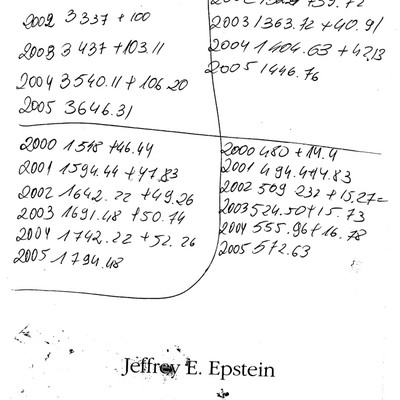 2002 3 337 + 100
2003 3 437 + 103.11
2004 3 540.11 + 106.20
2005 3646.31
2003 1363.72 + 40.91
2004 1 404.63 + 42,13
2005 1446.76
2000 1 548 + 46.44
2001 1594.44 + 47.83
2002 1642.22 + 49.26
2003 1691.48 + 50.74
2004 1742.22 + 52.26
2005 1794.48
2000 480 + 14.4
2001 494.4 + 14.83
2002 509 232 + 15,27=
2003 524.50 + 15.73
2004 555.96 + 16.78
2005 572.63
Jeffrey E. Epstein